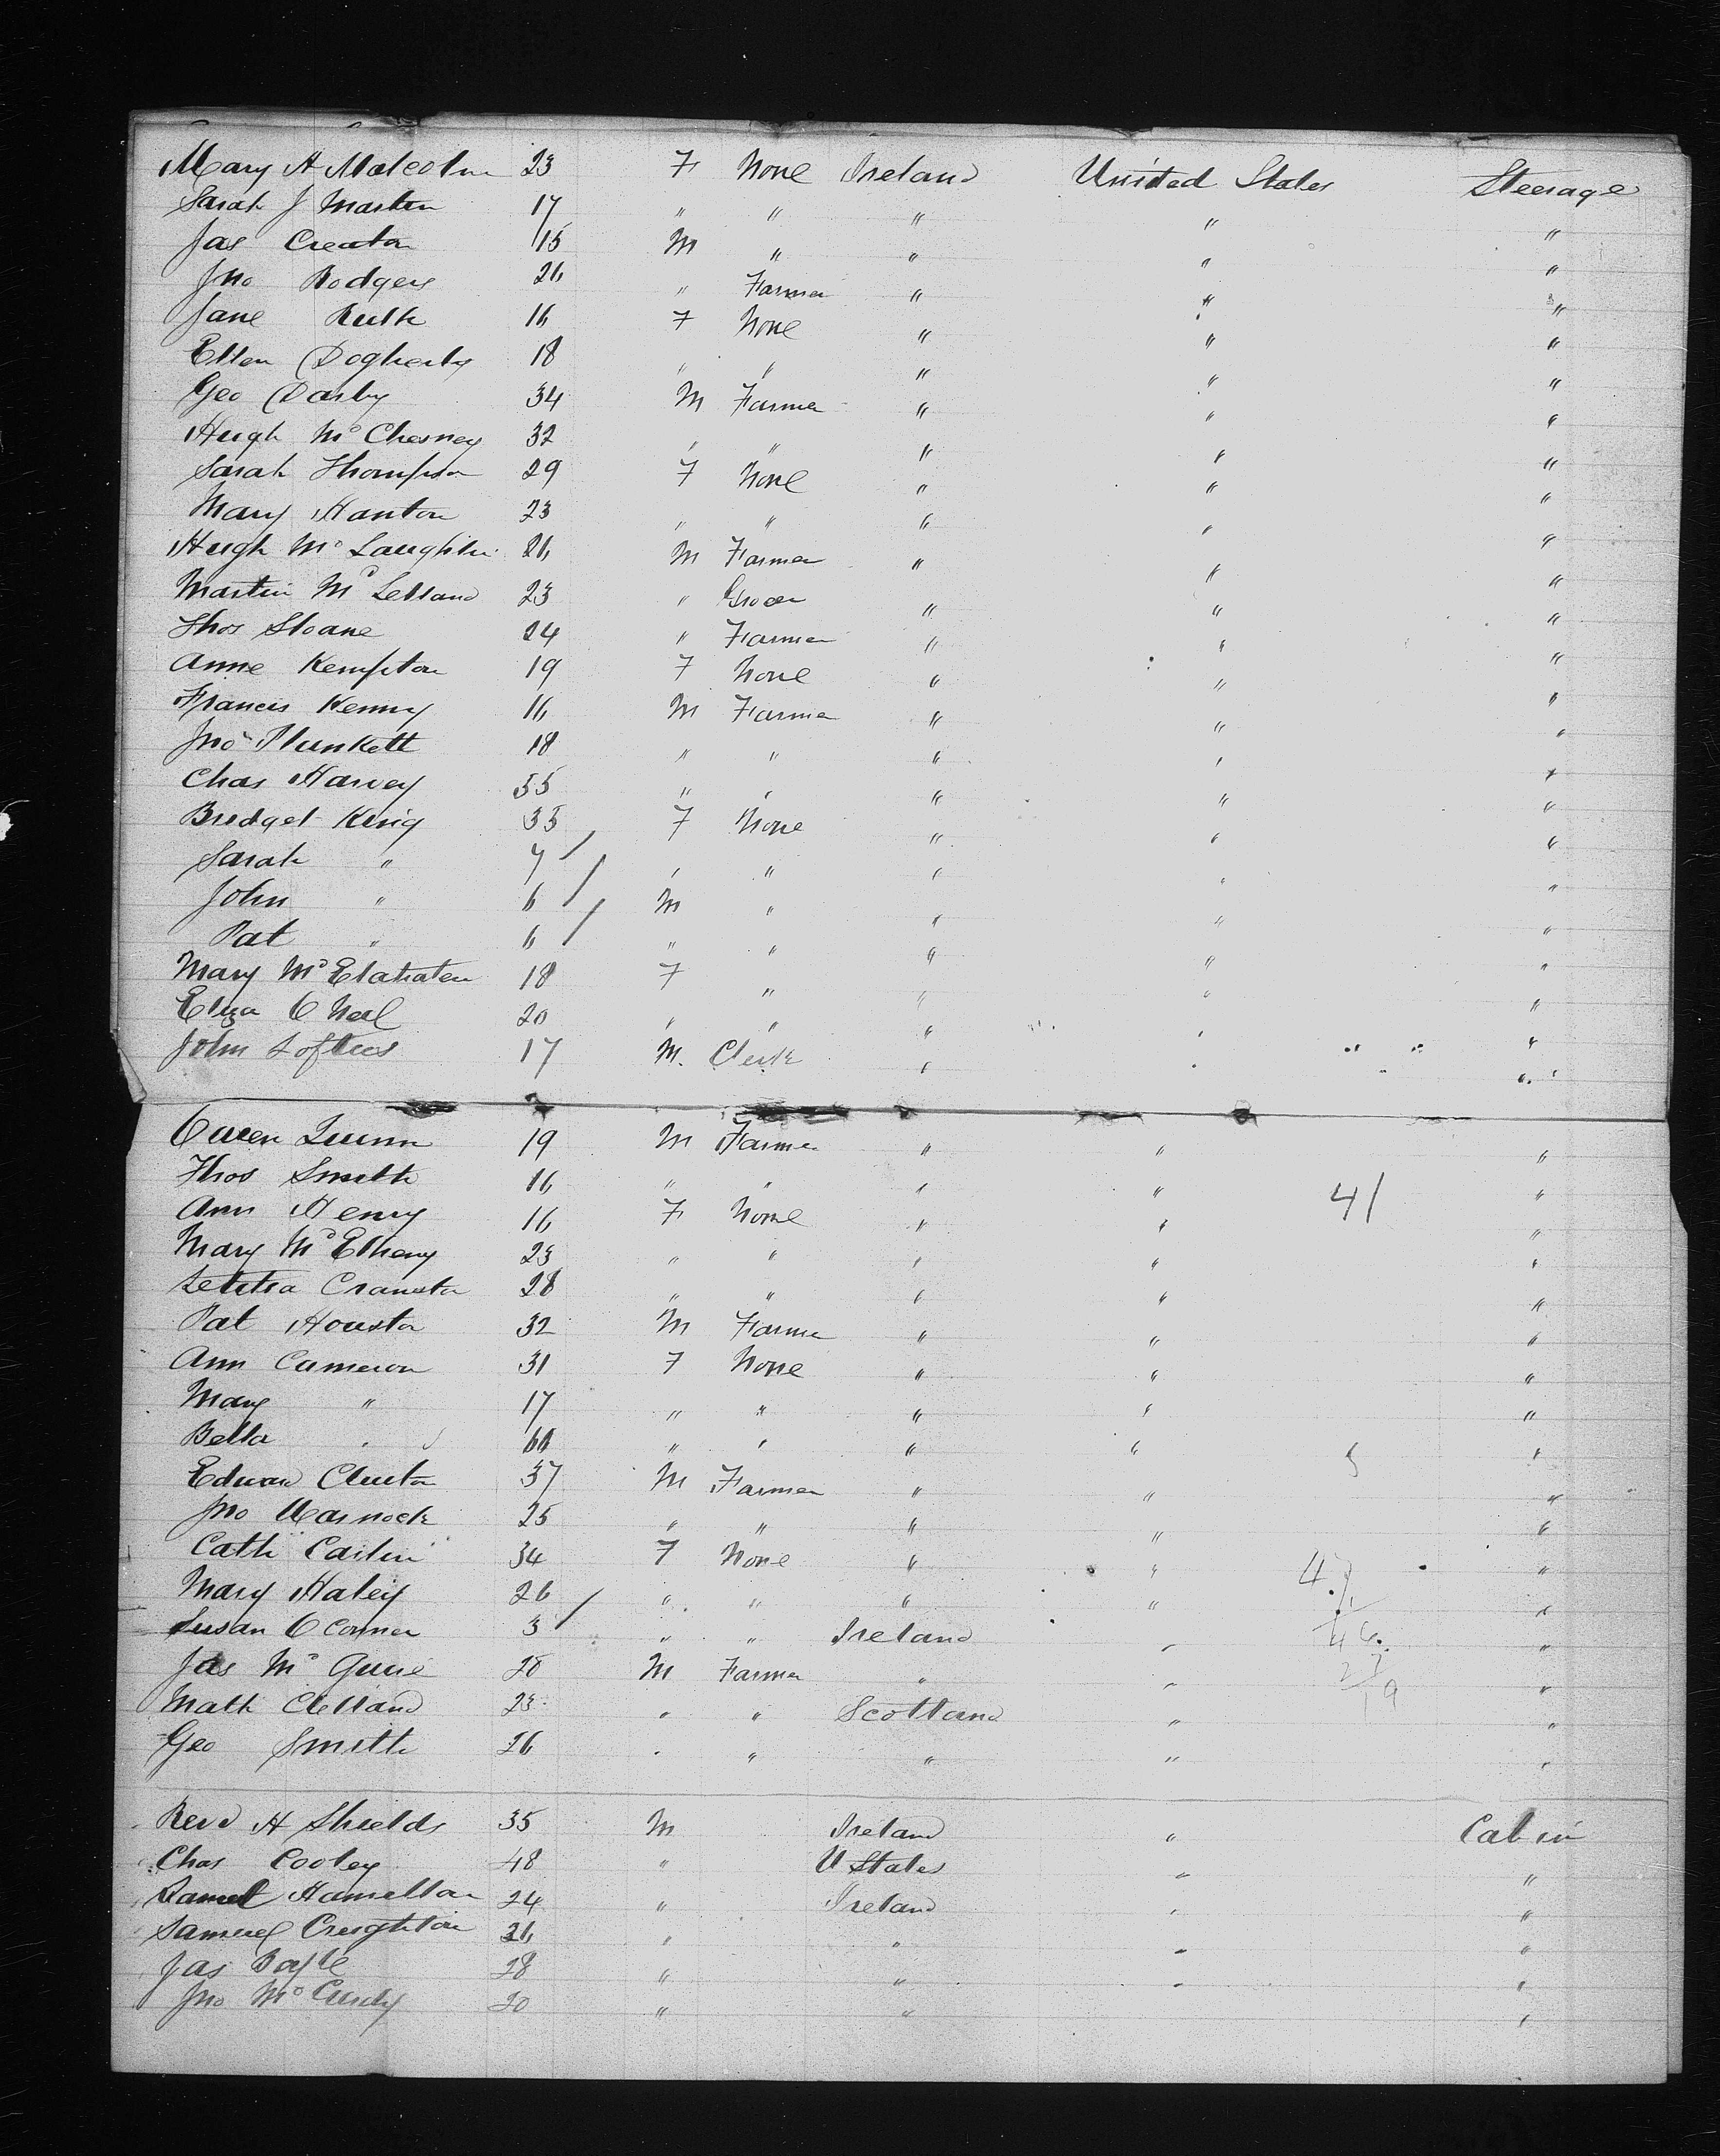 Mary A Malcolm 23 F None Ireland United States Steerage
Sarah J Martin 17 " " " " "
Jas Creaton 15 M " " " "
Jno Rodgers 26 " Farmer " " "
Jane 16 F None " " "
Ellen Dogherty 18 " " " " "
Geo Darby 34 M Farmer " " "
Hugh McChesney 32 " " " " "
Sarah Thompson 29 F None " " "
Mary Hanton 23 " " " " "
Hugh McLaughlin 26 M Farmer " " "
Martin McLelland 23 " Grocer " " "
Thos Sloane 24 " Farmer " " "
Anne Kempton 19 F None " " "
Francis Kenny 16 M Farmer " " "
Jno Plunkett 18 " " " " "
Chas Harvey 35 " " " " "
Bridget King 35 F None " " "
Sarah " 7 / " " " " "
John " 6 / M " " " "
Pat " 6 / " " " " "
Mary 18 F " " " "
Eliza O Neil 20 " " " " "
John Loftus 17 M. Clerk " " "
Owen Quinn 19 M Farmer " " "
Thos Smith 16 " " " " 41 "
Ann Henry 16 F None " " "
Mary McElheny 23 " " " " "
Letitia Cranston 28 " " " " "
Pat Houston 32 M Farmer " " "
Ann Cameron 31 F None " " "
Mary " 17 " " " " "
Bella " " " " " "
Edward Cluston 37 M Farmer " " "
Jno 25 " " " " "
Cath 34 F None " " "
Mary Haley 26 " " " " "
Susan O Conner 3 / " " Ireland " "
Jas McGuire 28 M Farmer " " "
Math Clelland 23 " " Scotland " "
Geo Smith 26 " " " " "
Revd H Shields 35 M Ireland " Cabin
Chas Cooley 48 " U States " "
Hamilton 24 " Ireland " "
Samuel Creighton 26 " " " "
Jas Boyle 28 " " " "
Jno McCurdy 20 " " " "